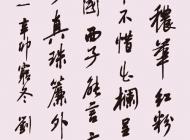 穠華紅粉
不惜出欄呈
國西子能言
真珠簾外
辛卯冬劉